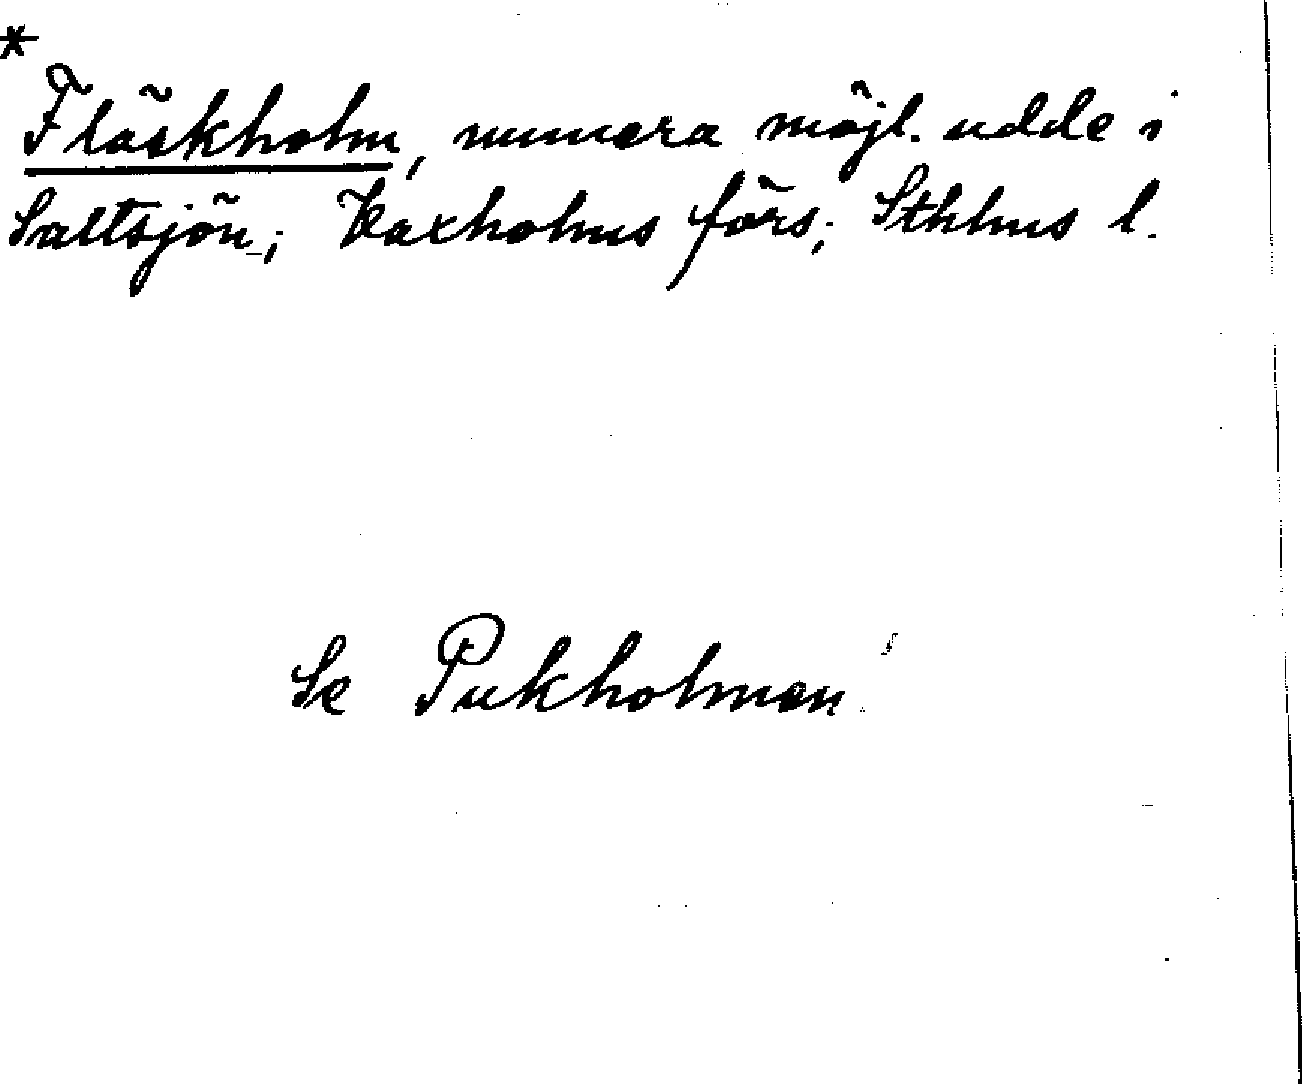 *
Fläskholm, numera möjl. udde i
Saltsjön; Vaxholms förs; Sthlms l.
Se Pukholmen